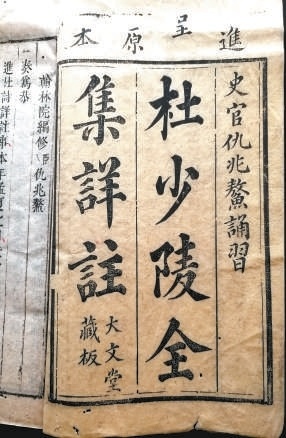 進呈原本
史官仇兆鰲誦習
杜少陵全
集詳註
大文堂
藏板
翰林院編修臣仇兆鰲
奏為恭
進杜詩詳註事本年